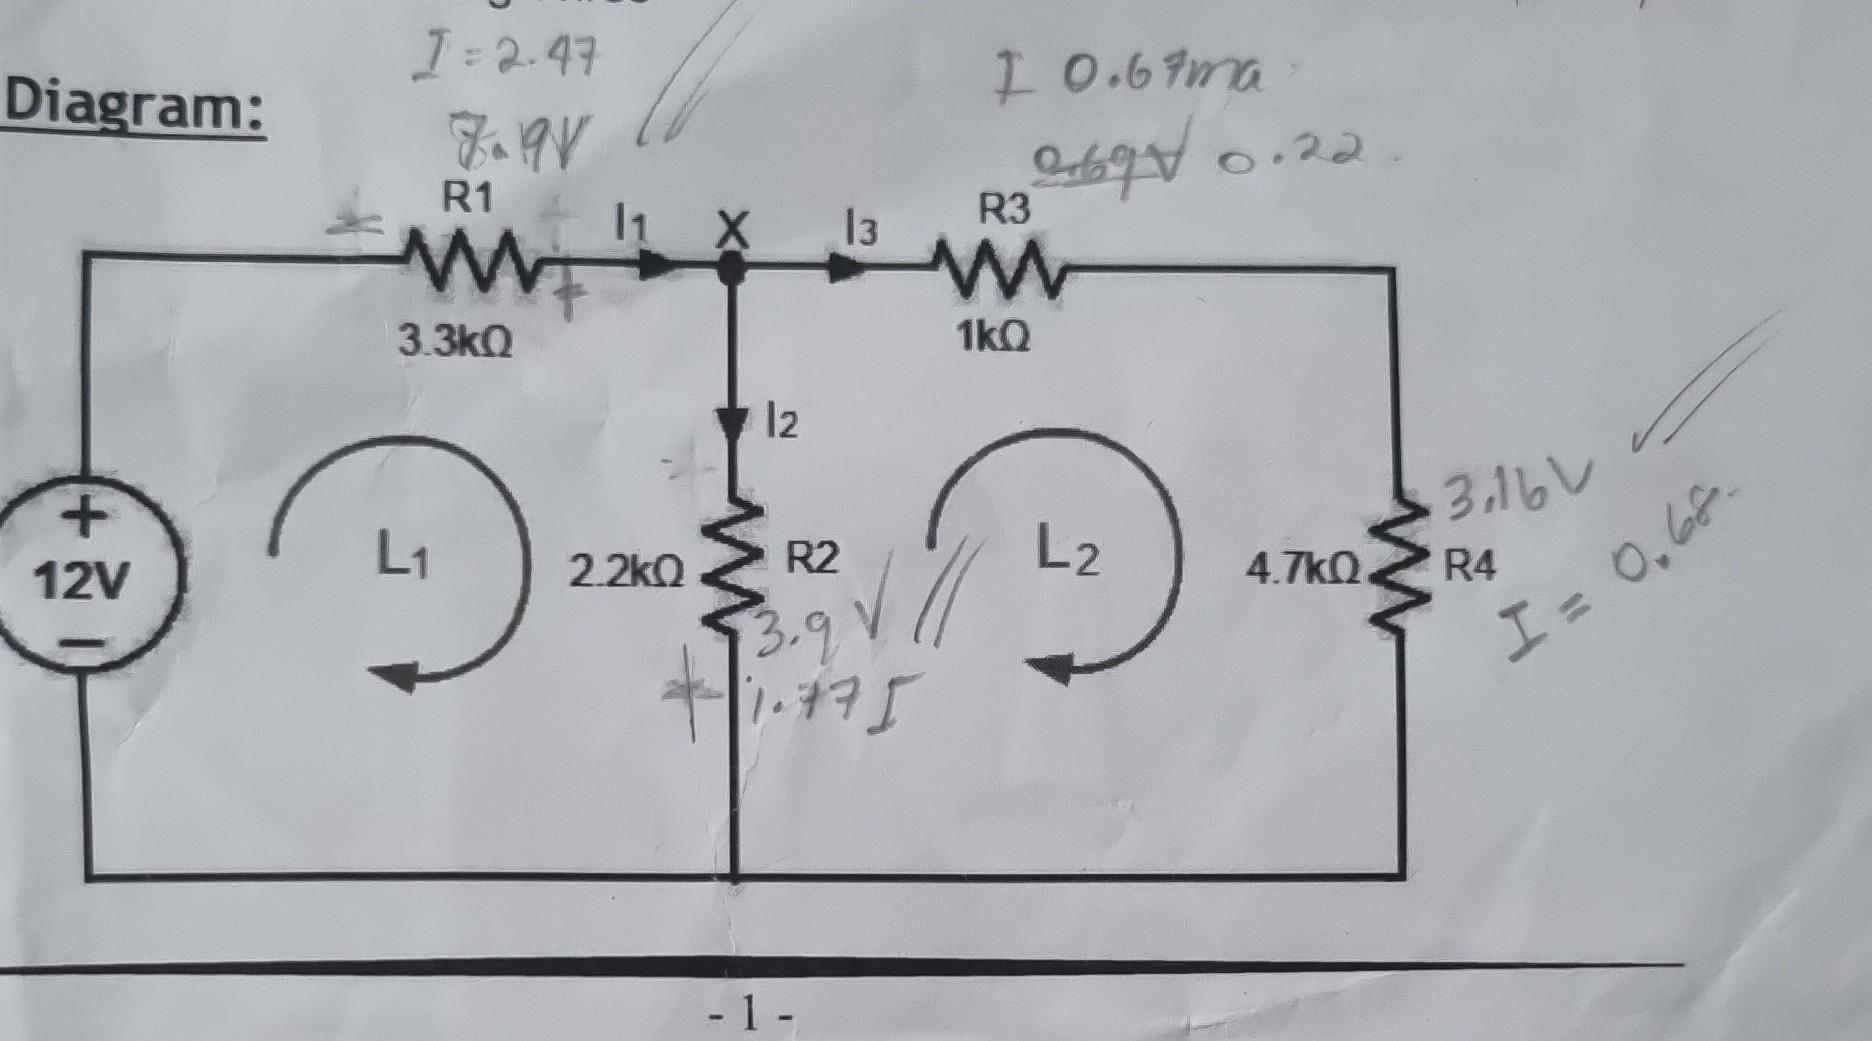 I = 2.47
I 0.67ma
Diagram:
7.9V
0.69V 0.22
R1
I1
X
I3
R3
3.3kΩ
1kΩ
I2
+
12V
−
L1
2.2kΩ
R2
L2
4.7kΩ
R4
3.16V
I = 0.68
3.9V
1.77 I
- 1 -